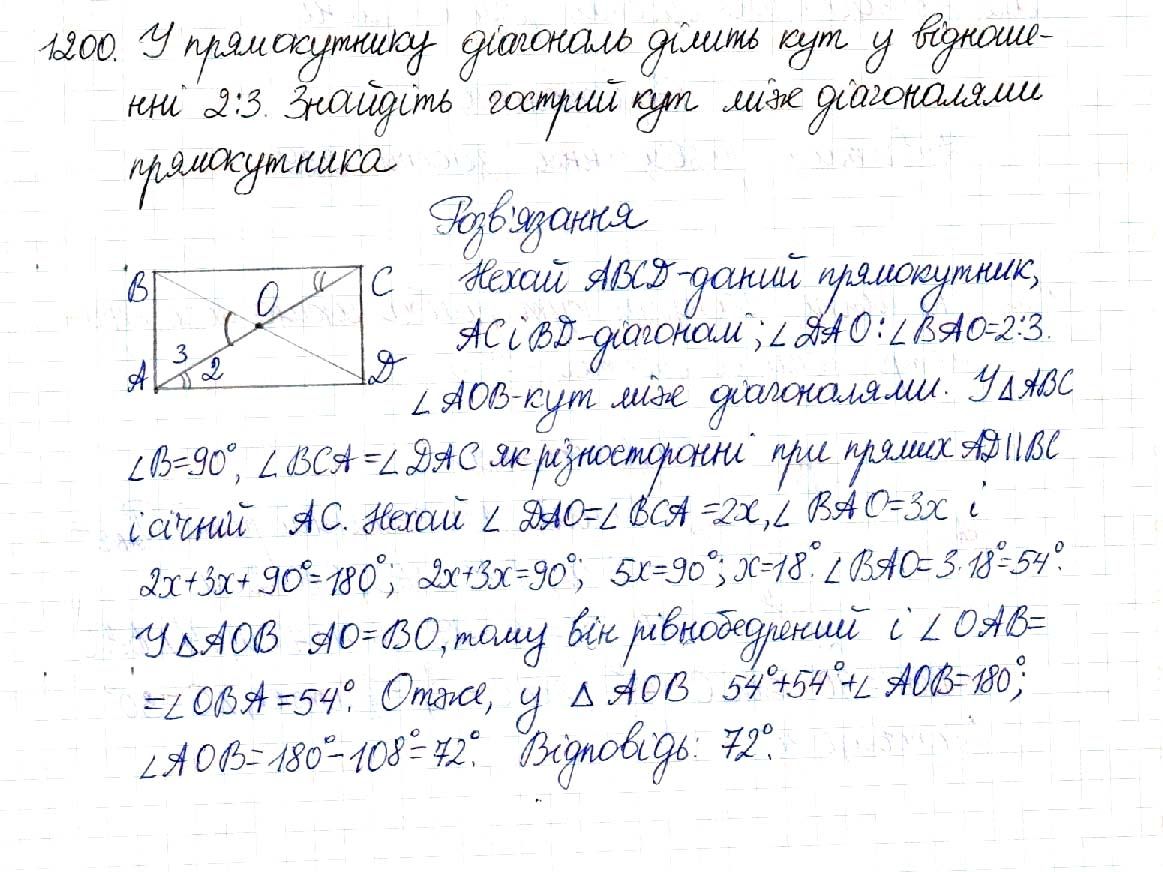 1200. У прямокутнику діагональ ділить кут у відноше-
нні 2:3. Знайдіть гострий кут між діагоналями
прямокутника
Розв'язання
B
C
O
3
2
A
D
Нехай ABCD-даний прямокутник,
AC і BD-діагоналі; ∠DAO:∠BAO=2:3.
∠AOB-кут між діагоналями. У △ABC
∠B=90°, ∠BCA=∠DAC як різносторонні при прямих AD||BC
і січній AC. Нехай ∠DAO=∠BCA=2x, ∠BAO=3x і
2x+3x+90°=180°; 2x+3x=90°; 5x=90°; x=18°. ∠BAO=3·18°=54°.
У △AOB AO=BO, тому він рівнобедрений і ∠OAB=
=∠OBA=54°. Отже, у △AOB 54°+54°+∠AOB=180°;
∠AOB=180°-108°=72°. Відповідь: 72°.